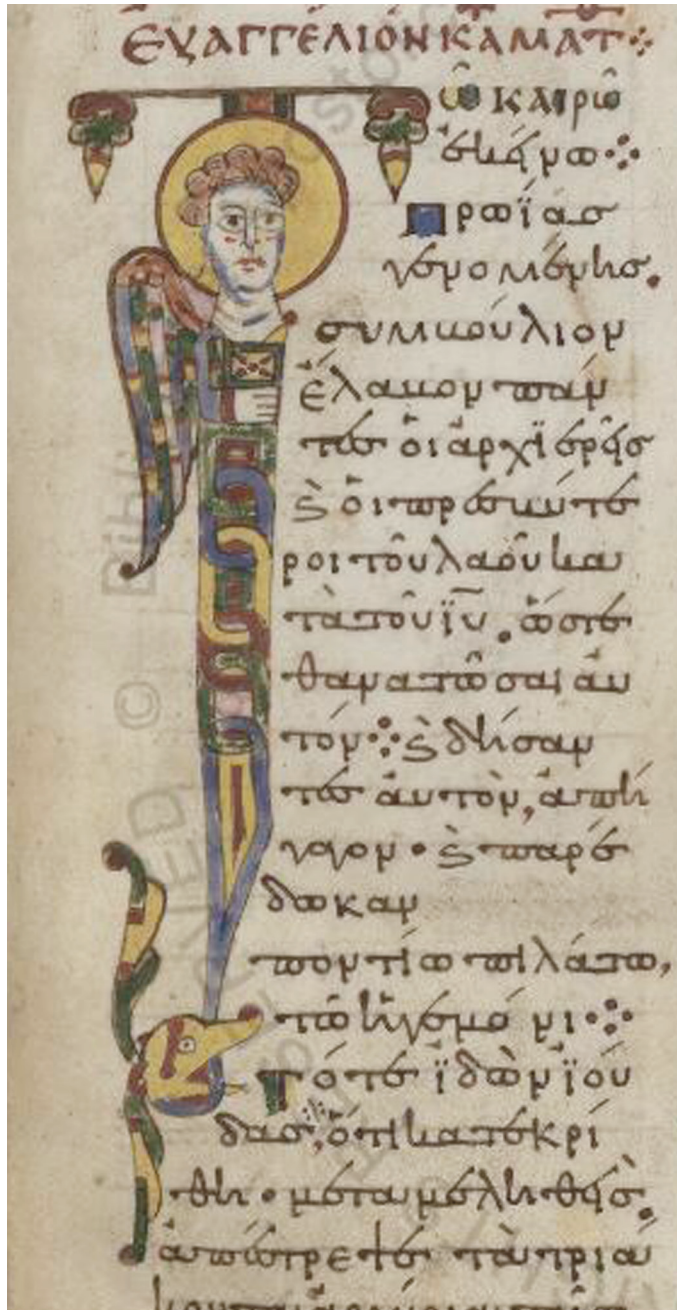 ΕΥΑΓΓΈΛΙΟΝ ΚΑ ΜΑΤ⁘
Τῶ καιρῶ
ἐκείνω⁘
Πρωΐας
γενομένης.
συμβούλιον
ἔλαβον πάν
τες ὁι ἀρχϊερεῖς
ϗ̀ ὁι πρεσβύτε
ροι τοῦ λαοῦ κα
τὰ τοῦ ϊῡ. ὥστε
θανατῶσαι ἀυ
τόν⁘ ϗ̀ δήσαν
τες ἀυτὸν, ἀπή
γαγον · ϗ̀ παρέ
δωκαν
ποντίω πιλάτω,
τῶ ἡγεμόνι⁘
Τότε ϊδὼν ϊού
δας, ὅτι κατεκρί
θη · μεταμεληθεὶς.
ἀπέστρεψε τὰ τριά